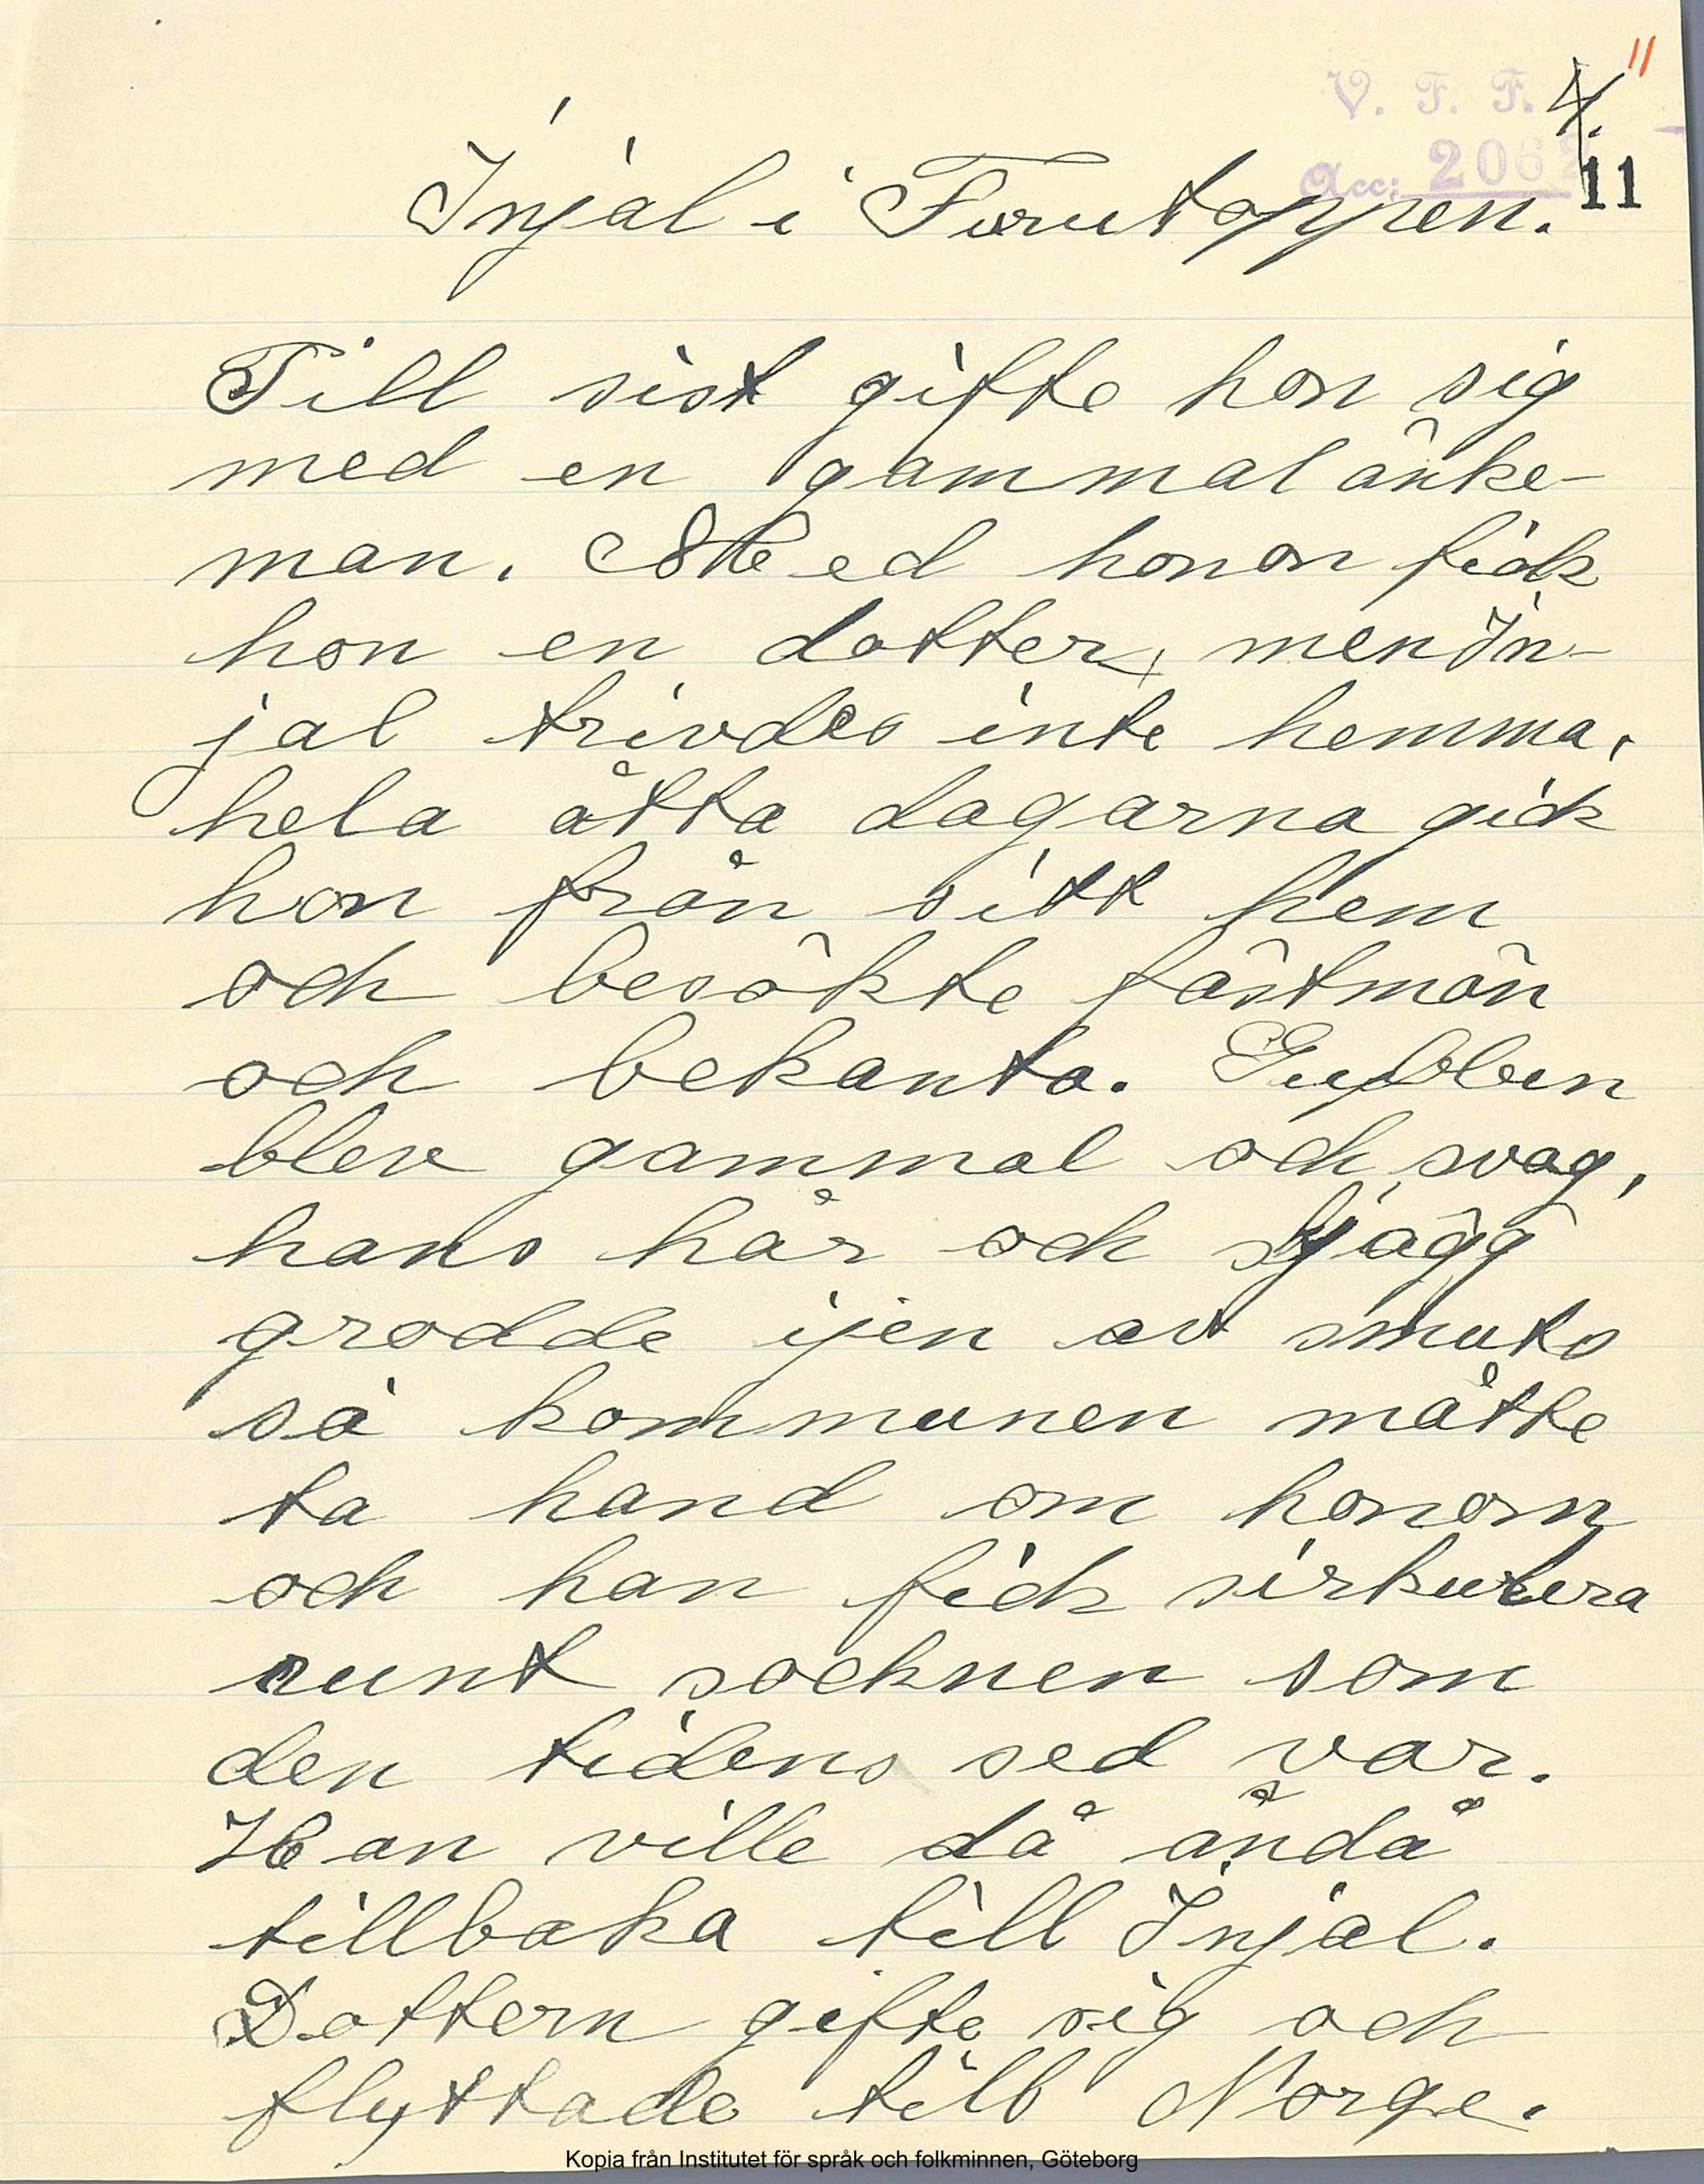 11
V. F. F. 4.
Acc: 2062 11
Injal i Furutoppen.
Till sist gifte hon sig
med en gammal änke-
man. Med honom fick
hon en dotter, men In-
jal trivdes inte hemma,
hela åtta dagarna gick
hon från sitt hem
och besökte fästmän
och bekanta. Gubben
blev gammal och svag,
hans hår och skjägg
grodde ijen av smuts
så kommunen måtte
ta hand om honom
och han fick sirkulera
runt socknen som
den tidens sed var.
Han ville då ändå
tillbaka till Injal.
Dottern gifte sig och
flyttade till Norge.
Kopia från Institutet för språk och folkminnen, Göteborg